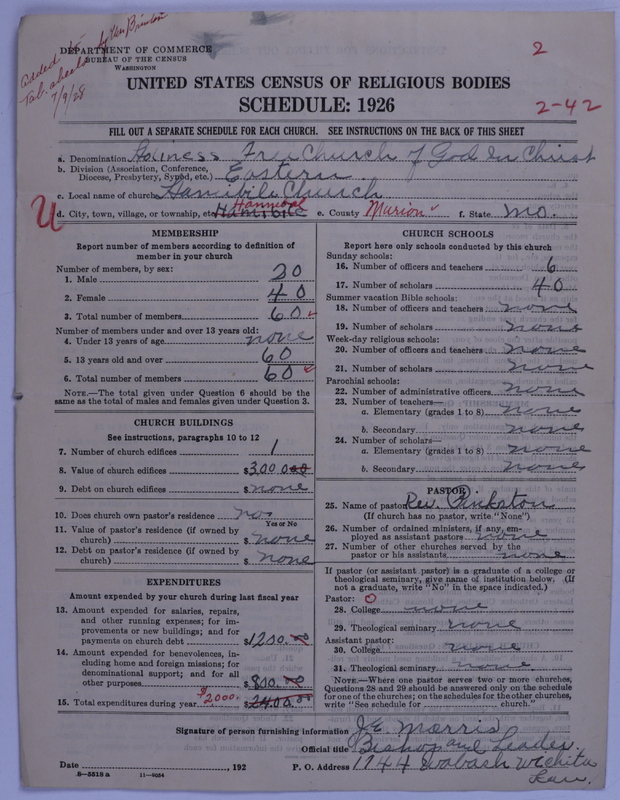 Added to
Tab. sheets by Van Brunton
7/9/28
DEPARTMENT OF COMMERCE
BUREAU OF THE CENSUS
WASHINGTON
2
UNITED STATES CENSUS OF RELIGIOUS BODIES
SCHEDULE: 1926
2-42
FILL OUT A SEPARATE SCHEDULE FOR EACH CHURCH. SEE INSTRUCTIONS ON THE BACK OF THIS SHEET
a. Denomination Holiness Free Church of God In Christ
b. Division (Association, Conference, Diocese, Presbytery, Synod, etc.) Eastern
c. Local name of church Hamibile Church
U
d. City, town, village, or township, etc. Hamibile Hannibal e. County Marion f. State Mo.
MEMBERSHIP
Report number of members according to definition of
member in your church
Number of members, by sex:
1. Male 20
2. Female 40
3. Total number of members 60
Number of members under and over 13 years old:
4. Under 13 years of age none
5. 13 years old and over 60
6. Total number of members 60
NOTE.—The total given under Question 6 should be the
same as the total of males and females given under Question 3.
CHURCH BUILDINGS
See instructions, paragraphs 10 to 12
7. Number of church edifices 1
8. Value of church edifices $3,000
9. Debt on church edifices $ none
10. Does church own pastor's residence? no
Yes or No
11. Value of pastor's residence (if owned by
church) $ none
12. Debt on pastor's residence (if owned by
church) $ none
EXPENDITURES
Amount expended by your church during last fiscal year
13. Amount expended for salaries, repairs,
and other running expenses; for im-
provements or new buildings; and for
payments on church debt $1200.00
14. Amount expended for benevolences, in-
cluding home and foreign missions; for
denominational support; and for all
other purposes $800.00
15. Total expenditures during year $2000. $2400.00
CHURCH SCHOOLS
Report here only schools conducted by this church
Sunday schools:
16. Number of officers and teachers 6
17. Number of scholars 40
Summer vacation Bible schools:
18. Number of officers and teachers none
19. Number of scholars none
Week-day religious schools:
20. Number of officers and teachers none
21. Number of scholars none
Parochial schools:
22. Number of administrative officers none
23. Number of teachers—
a. Elementary (grades 1 to 8) none
b. Secondary none
24. Number of scholars—
a. Elementary (grades 1 to 8) none
b. Secondary none
PASTOR
25. Name of pastor Rev. Pinkston
(If church has no pastor, write "None")
26. Number of ordained ministers, if any, em-
ployed as assistant pastors none
27. Number of other churches served by the
pastor or his assistants none
If pastor (or assistant pastor) is a graduate of a college or
theological seminary, give name of institution below. (If
not a graduate, write "No" in the space indicated.)
Pastor: O
28. College none
29. Theological seminary none
Assistant pastor:
30. College none
31. Theological seminary none
NOTE.—Where one pastor serves two or more churches,
Questions 28 and 29 should be answered only on the schedule
for one of the churches; on the schedules for the other churches,
write "See schedule for church."
Signature of person furnishing information J. E. Morris
Official title Bishop and Leader
Date , 192 P. O. Address 1144 Wabash Wichita
Kan.
8-5518a 11-9054